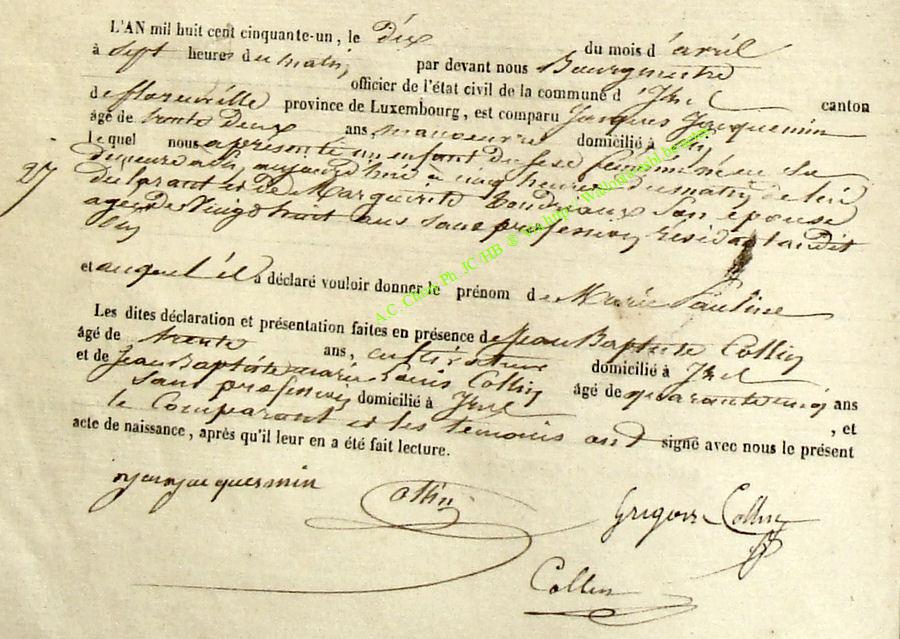 L'AN mil huit cent cinquante-un, le dix du mois d'avril
à sept heures du matin, par devant nous Bourgmestre
officier de l'état civil de la commune d'Izel canton
de florenville province de Luxembourg, est comparu Jacques Jacquemin
âgé de trente deux ans, manoeuvre domicilié à Izel
le quel nous a présenté un enfant du sexe féminin né en sa
demeure a Izel aujourd'hui à cinq heures du matin, de lui
déclarant et de Marguerite son épouse
agée de vingt huit ans sans profession, résidant audit
Izel
27
et auquel il a déclaré vouloir donner le prénom de Marie Pauline
Les dites déclaration et présentation faites en présence de Jean Baptiste Collin
âgé de trente ans, cultivateur domicilié à Izel
et de Jean Baptiste marie Louis Collin âgé de quarante cinq ans
sans profession domicilié à Izel , et
le Comparant et les témoins ont signé avec nous le présent
acte de naissance, après qu'il leur en a été fait lecture.
jacquemin Collin Grégoire Collin
Collin